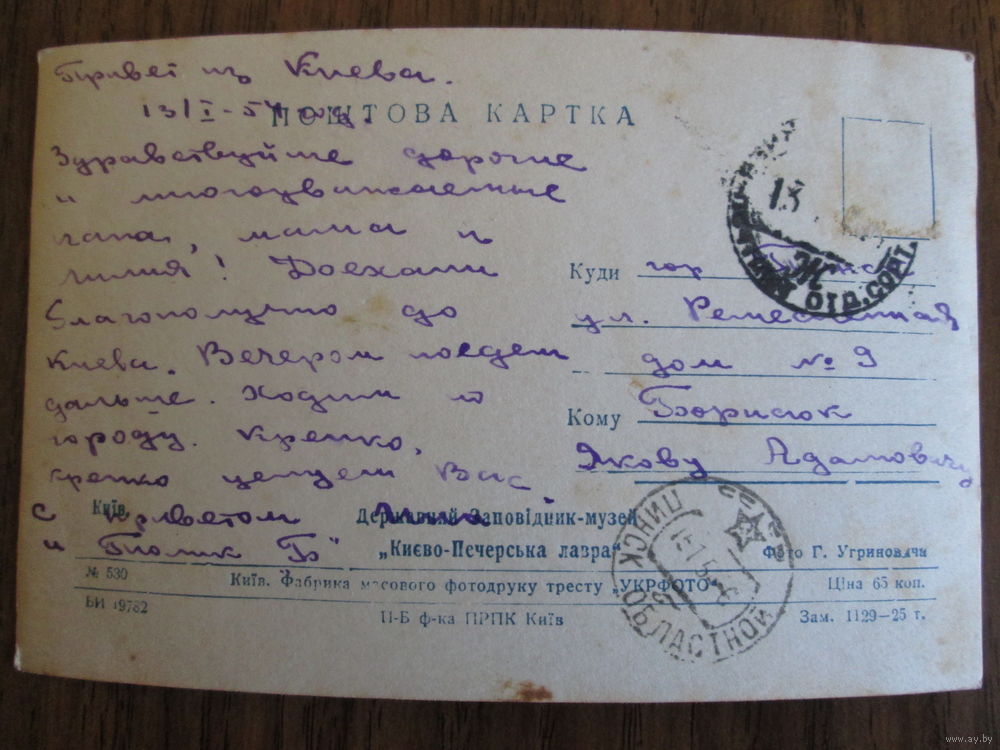 Привет из Киева.
13/I-54 год.
ПОШТОВА КАРТКА
Здравствуйте дорогие
и многоуважаемые
папа, мама и
Лилия! Доехали
благополучно до
Киева. Вечером поедем
дальше. Ходим по
городу. Крепко,
крепко целуем Вас
С приветом
и Толик Б"
Куди гор. Пинск
ул. Ремесленная
дом № 9
Кому Борисюк
Якову Адамовичу
13
Ж
ОТД. СОРТ.
Київ.
Державний Заповідник-музей
„Києво-Печерська лавра"
Фото Г. Угриновича
№ 530
Київ. Фабрика масового фотодруку тресту „УКРФОТО"
Ціна 65 коп.
БИ 19782
П-Б ф-ка ПРПК Київ
Зам. 1129—25 г.
СССР
ПИНСК ОБЛАСТНОЙ
www.ay.by